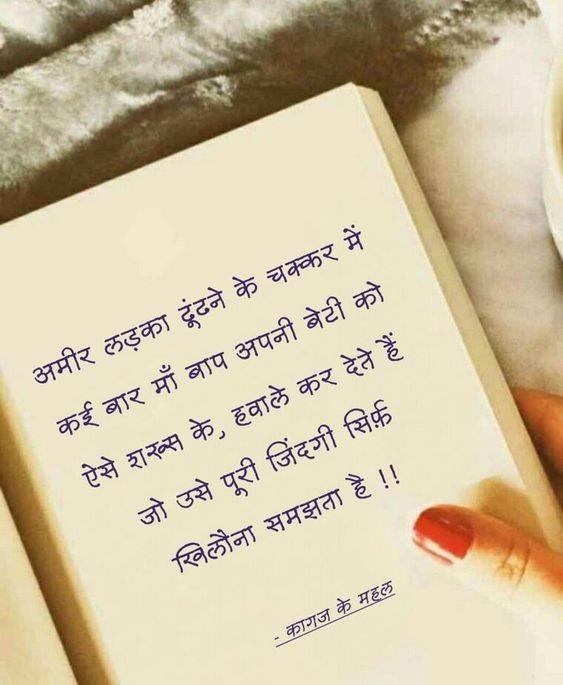 अमीर लड़का ढूंढने के चक्कर में
कई बार माँ बाप अपनी बेटी को
ऐसे शख्स के, हवाले कर देते हैं
जो उसे पूरी जिंदगी सिर्फ़
खिलौना समझता है !!
- कागज के महल